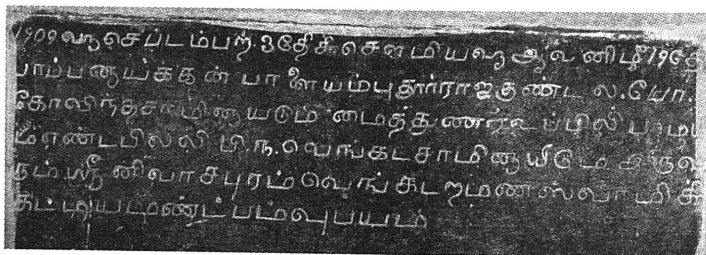 1909 ௵ செப்டம்பற் 3தேதிக்கு சௌமியவு ஆவனி௴ 19தே
பாம்பனாய்க்கன் பாளையம்புதூர்ராஜகுண்டல.போ.
கோவிந்தசாமினாயடும் மைத்துணர்உப்பிலி
ம்எண்டபிலலி பி.ந.வெங்கடசாமினாயீடும்
நம் ஸ்ரீனிவாசபுரம்வெங்கடறமணஸ்வாமிகி
கட்டியமண்ட்பம்வுபயம்